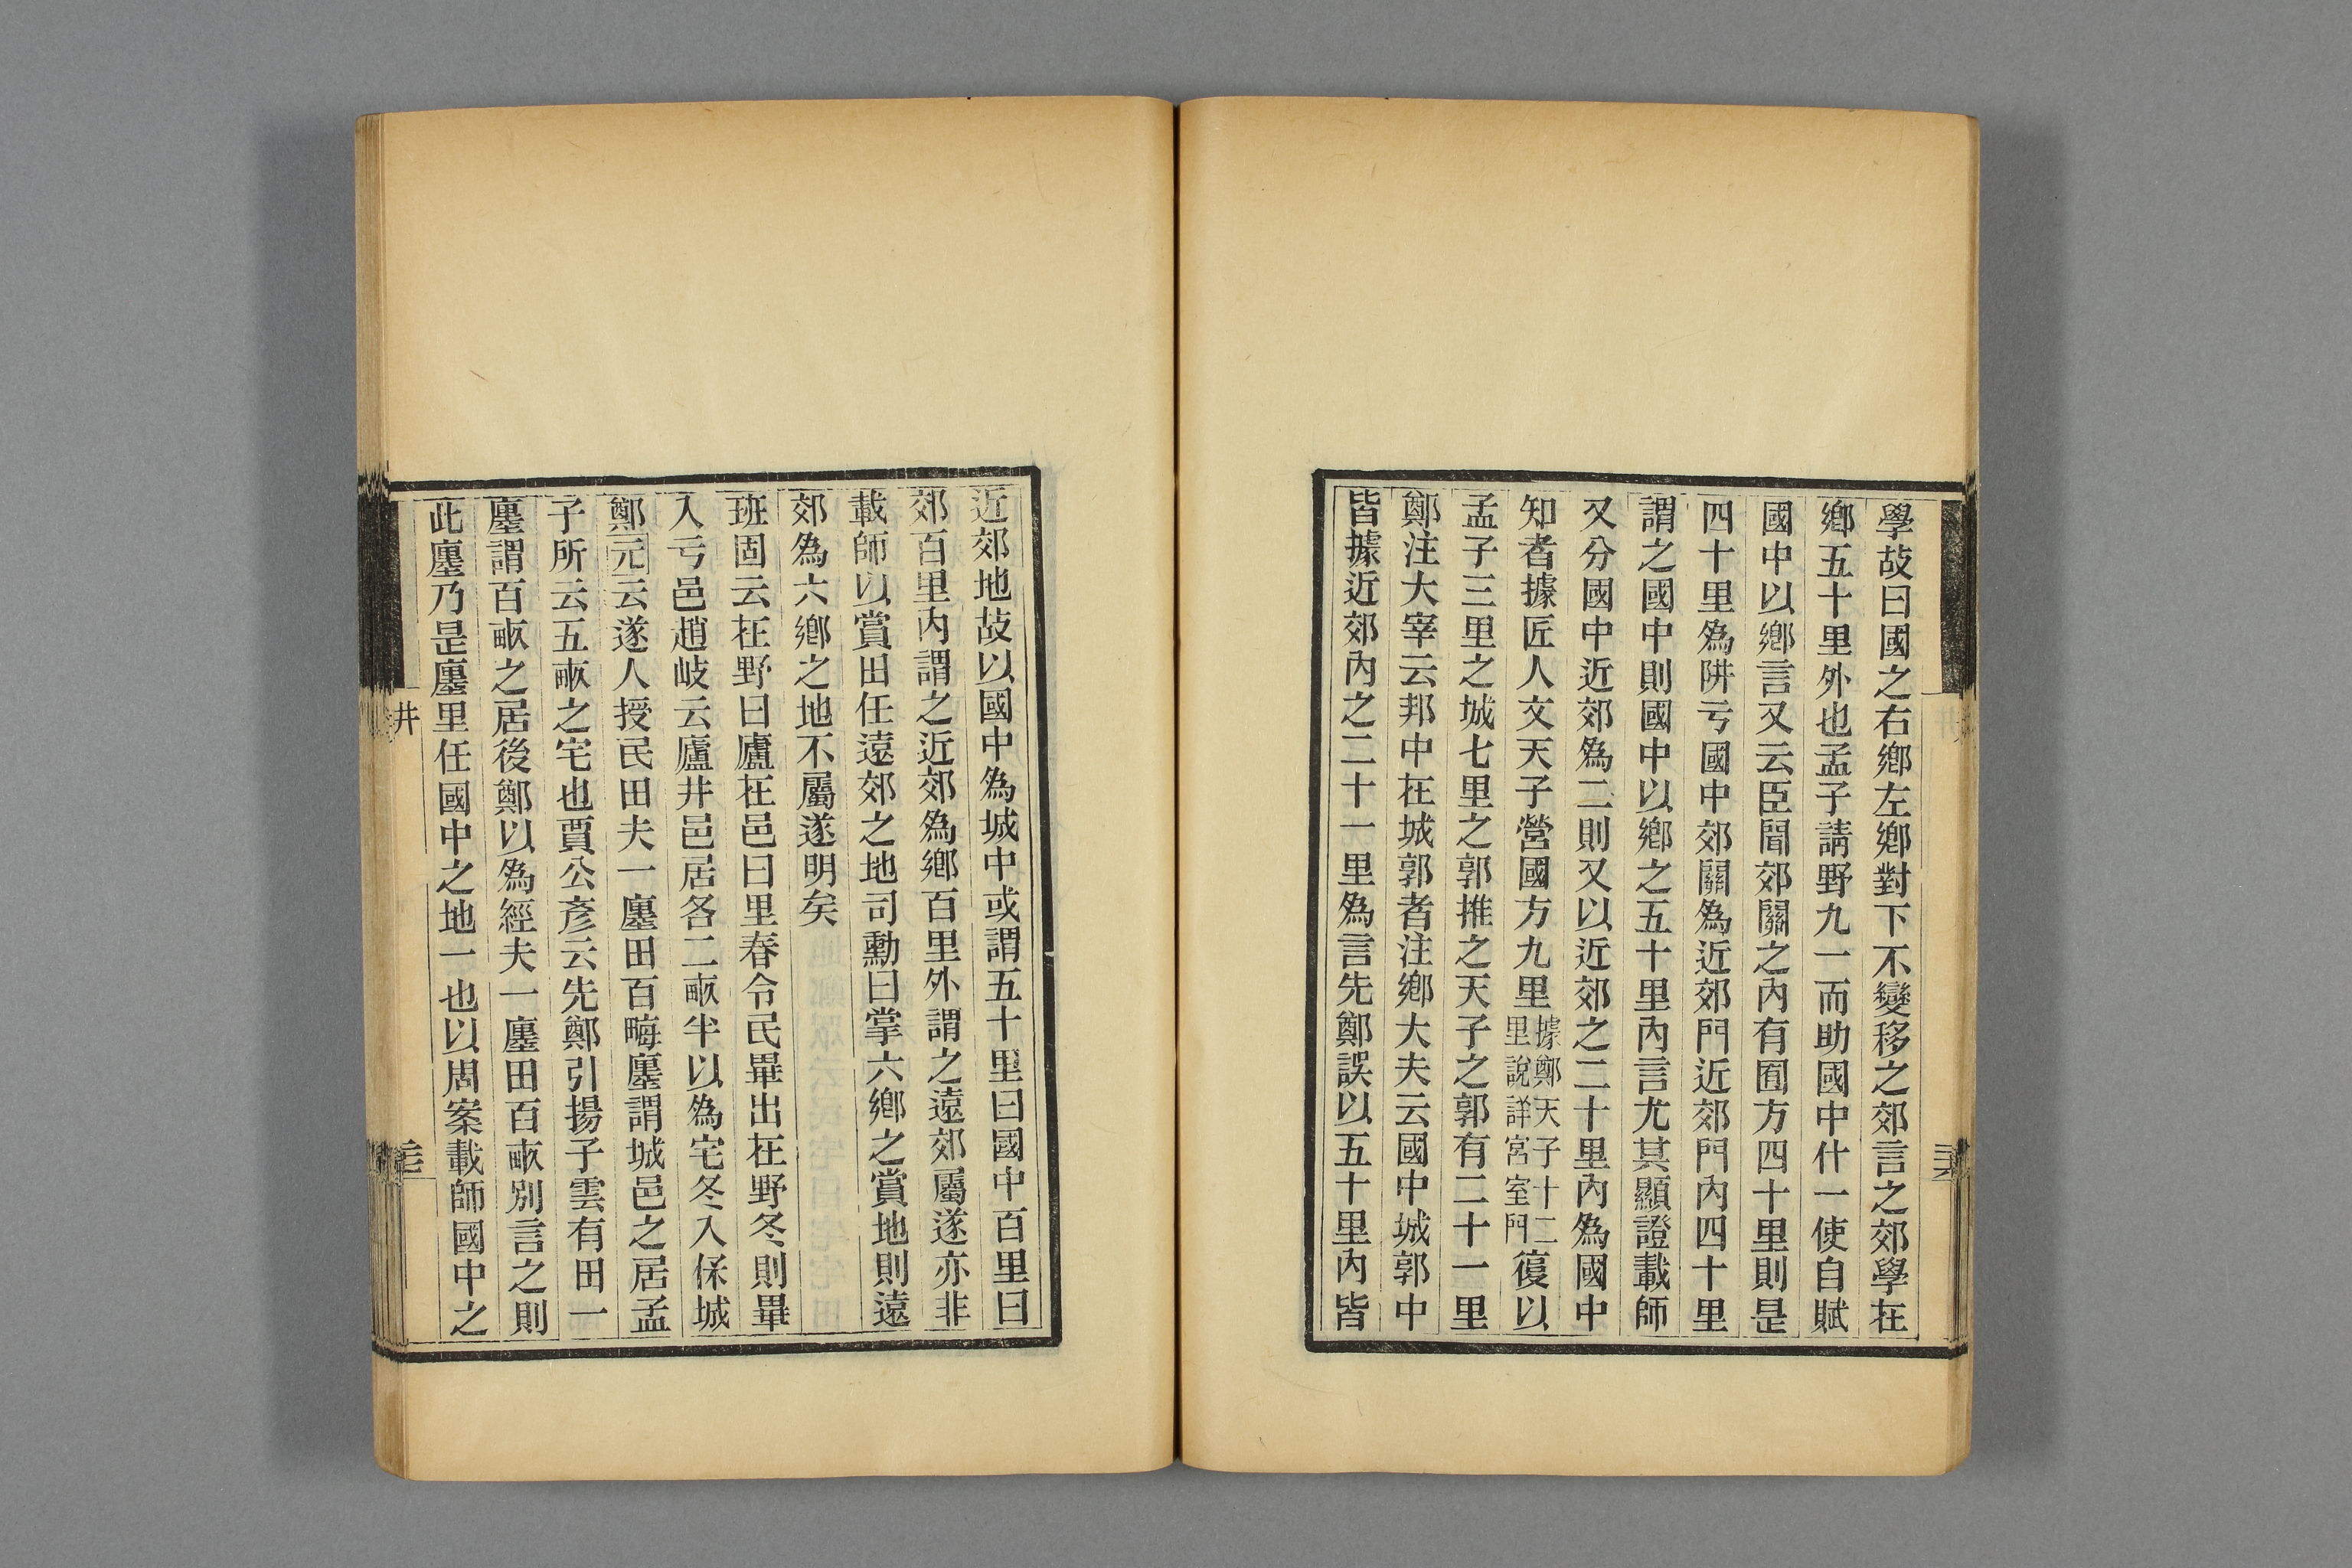 學故曰國之右鄕左鄕對下不變移之郊言之郊學在
鄕五十里外也孟子請野九一而助國中什一使自賦
國中以鄕言又云臣聞郊關之內有囿方四十里則是
四十里爲阱亏國中郊關爲近郊門近郊門內四十里
謂之國中則國中以鄕之五十里內言尤其顯證載師
又分國中近郊爲二則又以近郊之二十里內爲國中
知者據匠人文天子營國方九里據鄭天子十二里說詳宮室門復以
孟子三里之城七里之郭推之天子之郭有二十一里
鄭注大宰云邦中在城郭者注鄕大夫云國中城郭中
皆據近郊內之二十一里爲言先鄭誤以五十里內皆
近郊地故以國中爲城中或謂五十里曰國中百里曰
郊百里內謂之近郊爲鄕百里外謂之遠郊屬遂亦非
載師以賞田任遠郊之地司勳曰掌六鄕之賞地則遠
郊爲六鄕之地不屬遂明矣
班固云在野曰廬在邑曰里春令民畢出在野冬則畢
入亏邑趙岐云廬井邑居各二畞半以爲宅冬入保城
鄭元云遂人授民田夫一廛田百畮廛謂城邑之居孟
子所云五畞之宅也賈公彥云先鄭引揚子雲有田一
廛謂百畞之居後鄭以爲經夫一廛田百畞別言之則
此廛乃是廛里任國中之地一也以周案載師國中之
井